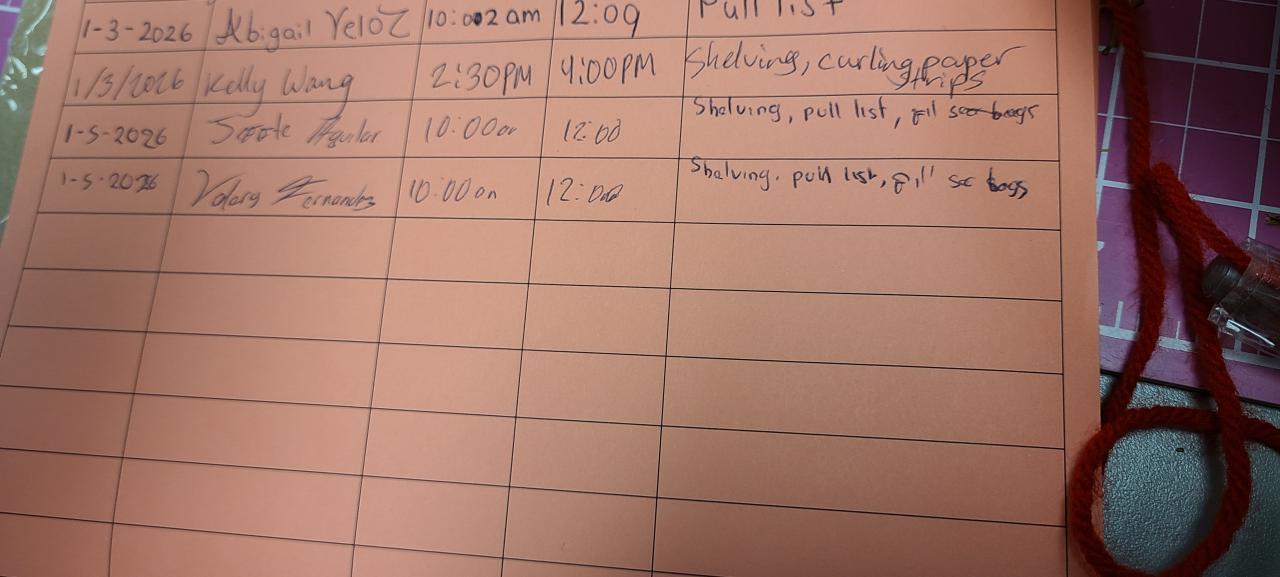 1-3-2026 Abigail Veloz 10:02am 12:09 Pull list
1/3/2026 Kelly Wang 2:30PM 4:00PM Shelving, curling paper strips
1-5-2026 Aguilar 10:00am 12:00 Shelving, pull list, fill bags
1-5-2026 Valery Fernandez 10:00am 12:00 Shelving, pull list, fill bags